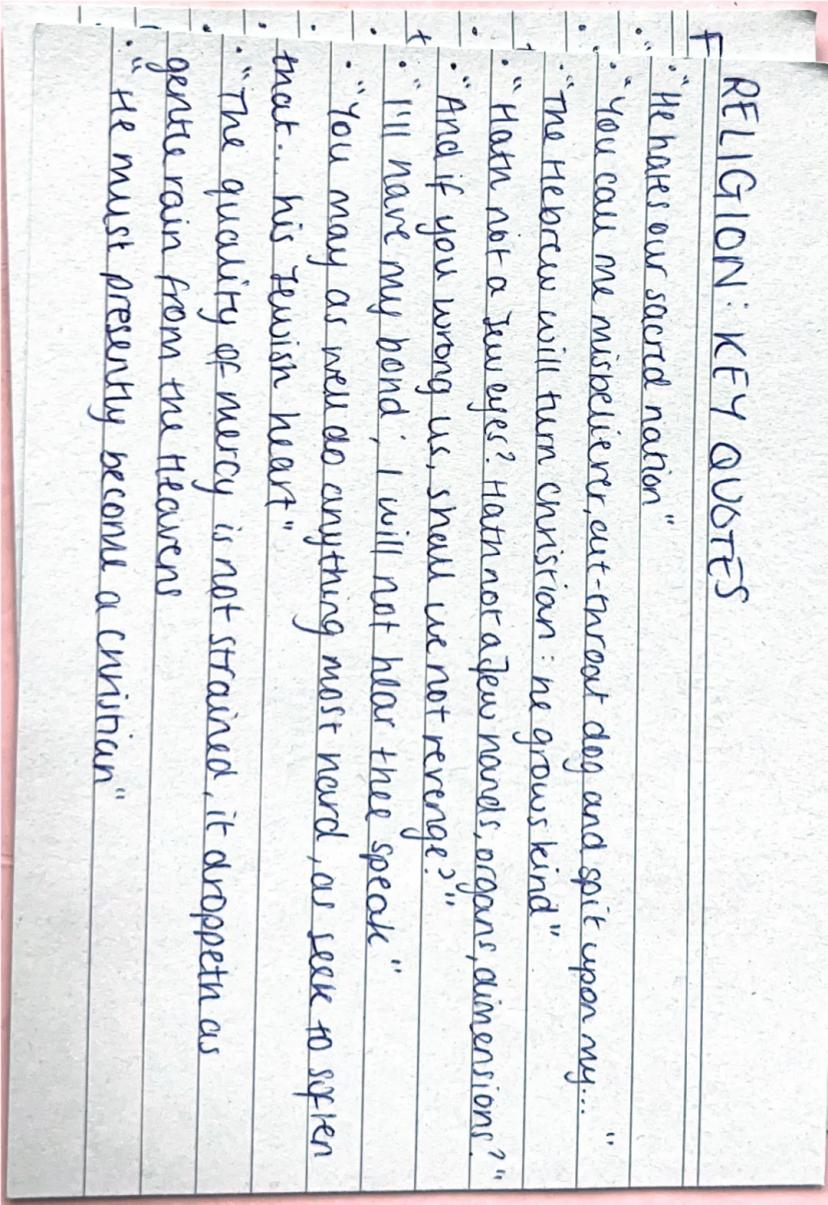 RELIGION: KEY QUOTES
· "He hates our sacred nation"
· "You call me misbeliever, cut-throat dog and spit upon my... "
· "The Hebrew will turn Christian: he grows kind"
· "Hath not a Jew eyes? Hath not a Jew hands, organs, dimensions?"
· "And if you wrong us, shall we not revenge?"
· "I'll have my bond; I will not hear thee speak"
· "You may as well do anything most hard, as seek to soften
that... his Jewish heart"
· "The quality of mercy is not strained, it droppeth as
gentle rain from the Heavens
· "He must presently become a Christian"